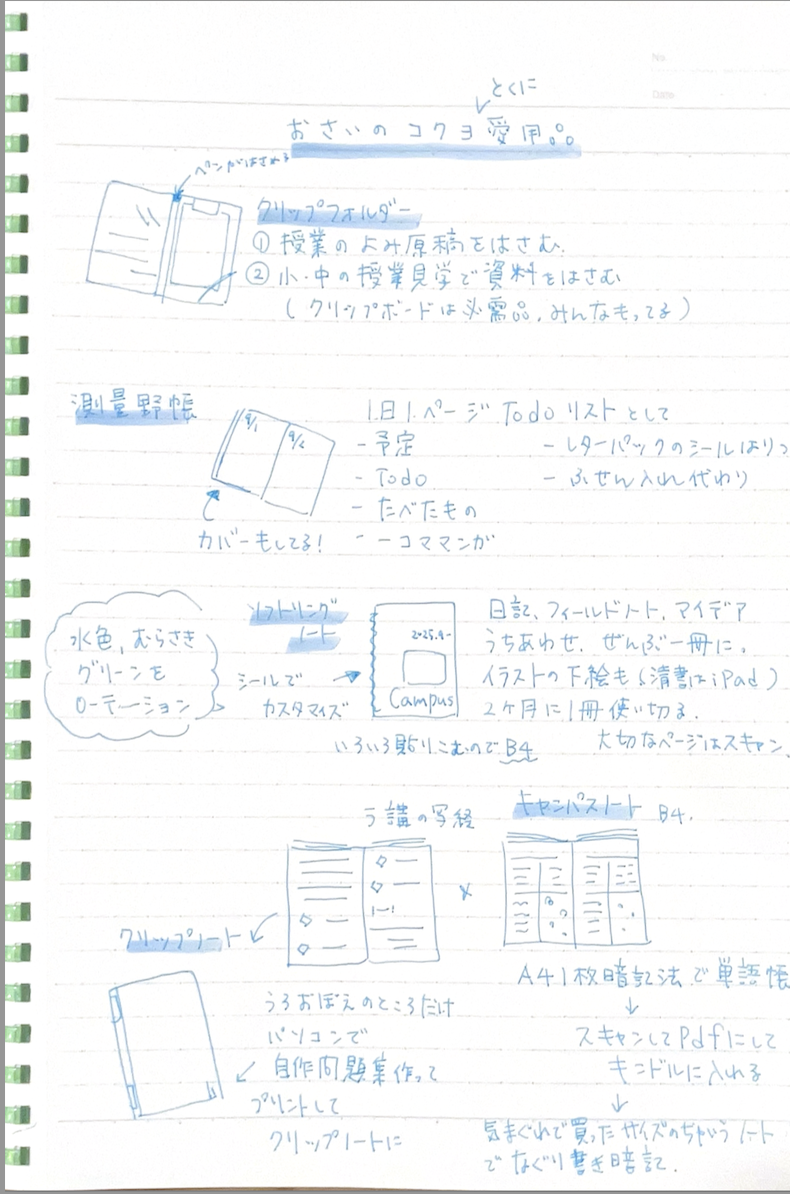 No.
Date
とくに
おさいの コクヨ 愛用品
ペンがはさめる
クリップフォルダー
① 授業のよみ原稿をはさむ.
② 小・中の授業見学で資料をはさむ
(クリップボードは必需品,みんなもってる)
測量野帳
9/1
9/2
1日1ページ Todo リストとして
- 予定
- Todo
- たべたもの
- 一コママンガ
- レターパックのシールはりつ
- ふせん入れ代わり
カバーもしてる!
水色,むらさき
グリーンを
ローテーション
ソフトリング
ノート
シールで
カスタマイズ
2025.9-
Campus
日記、フィールドノート,マイデア
うちあわせ. ぜんぶ一冊に。
イラストの下絵も(清書はiPad)
2ヶ月に1冊使い切る.
いろいろ貼りこむので B4
大切なページはスキャン、
う 講の写経
キャンパスノート B4.
クリップノート
うろおぼえのところだけ
パソコンで
自作問題集作って
プリントして
クリップノートに
A4 1枚暗記法で単語帳
↓
スキャンしてPdfにして
キンドルに入れる
↓
気まぐれで買ったサイズのちがうノート
でなぐり書き暗記.